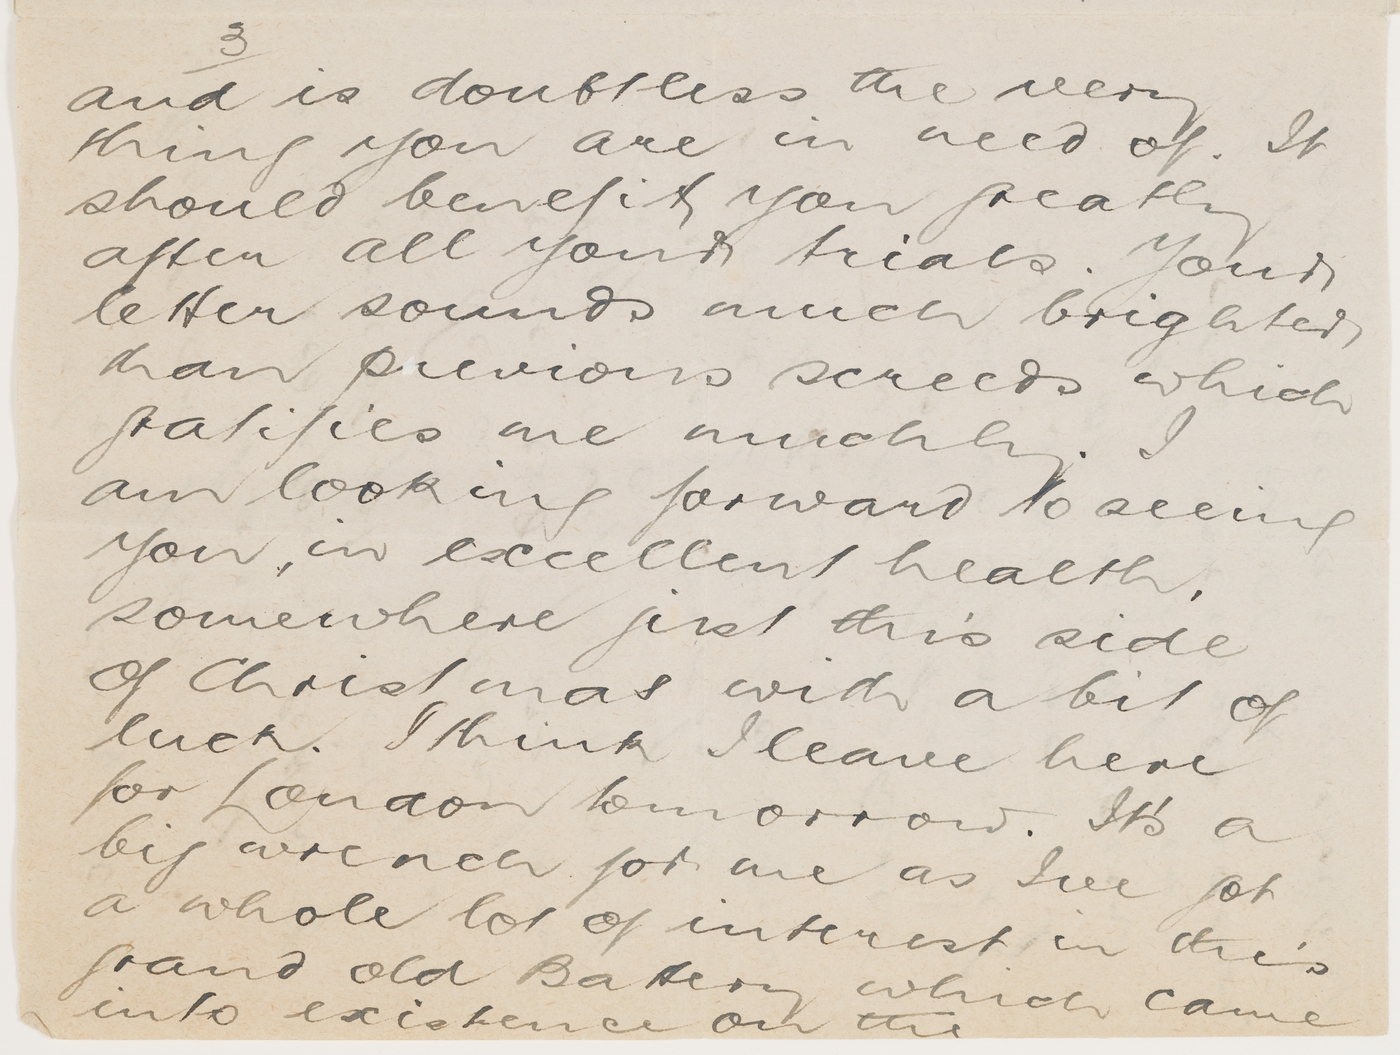 3
and is doubtless the very
thing you are in need of. It
should benefit you greatly
after all your trials. Your
letter sounds much brighter
than previous screeds which
gratifies me muchly. I
am looking forward to seeing
you, in excellent health,
somewhere just this side
of Christmas with a bit of
luck. I think I leave here
for London tomorrow. It's a
big wrench for me as I've got
a whole lot of interest in this
grand old Battery which came
into existence on the